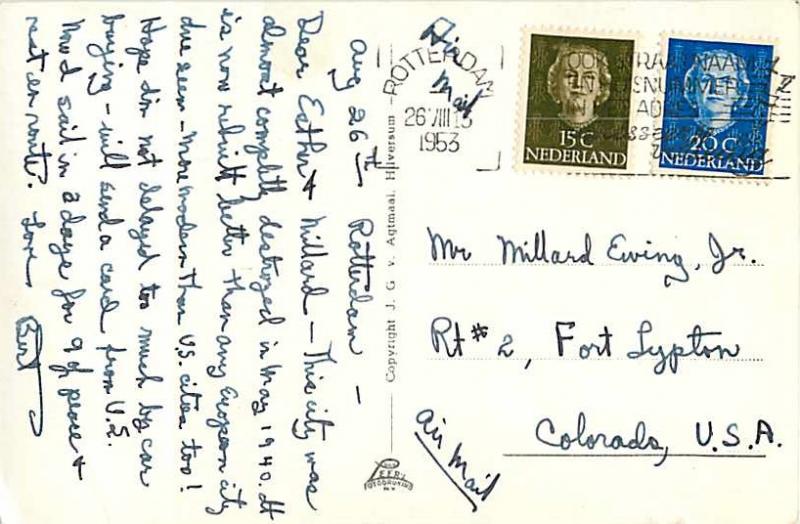 Aug 26th Rotterdam —
Dear Esther & Millard — This city was
almost completly destroyed in May 1940. It
is now rebuilt better than any European city
I've seen — more modern than U.S. cities too!
Hope I'm not delayed too much by car
buying — will send a card from U.S.
Mod sail in 2 days for 9 of peace &
rest en route. Love Bert
Copyright J. G. v. Agtmaal, Hilversum
Air
Mail
ROTTERDAM
26 VIII 13
1953
OOK STRAATNAAM
EN HUISNUMMER
IN ADRES
15 C
NEDERLAND
20 C
NEDERLAND
Mr Millard Ewing, Jr.
Rt # 2, Fort Lypton
Colorado, U.S.A.
air mail
FOTODRUKIND
N.V.